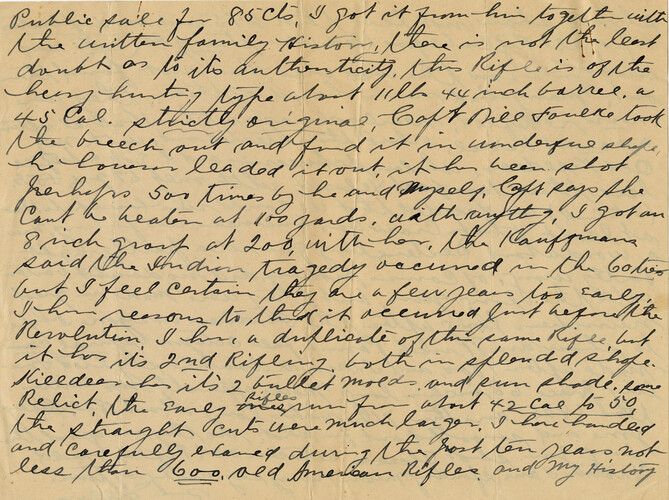 Public sale for 85 cts, I got it from him together with
the written family History, there is not the least
doubt as to its authenticity, this Rifle is of the
heavy hunting type about 11 lbs 44 inch barrel, a
45 Cal. strictly original, Capt Bill Faulke took
the breech out and find it in wonderful shape,
he however leaded it out, it has been shot
perhaps 500 times by he and myself, Capt says she
Cant be beaten at 100 yards, with anything, I got an
8 inch group at 200, with her, the Kauffmans
said the Indian tragedy occured in the 60ties
but I feel certain they are a few years too Early,
I have reasons to think it occured just before the
Revolution, I have a duplicate of this same Rifle, but
it has its 2nd Rifling, both in splendid shape.
Killdeer has it's 2 bullet molds, and sun shade, some
Relict, the Early Rifles run from about 42 Cal to 50,
the straight cuts were much larger, I have handled
and carefully exained during the past ten years, not
less than 600, old American Rifles and My History